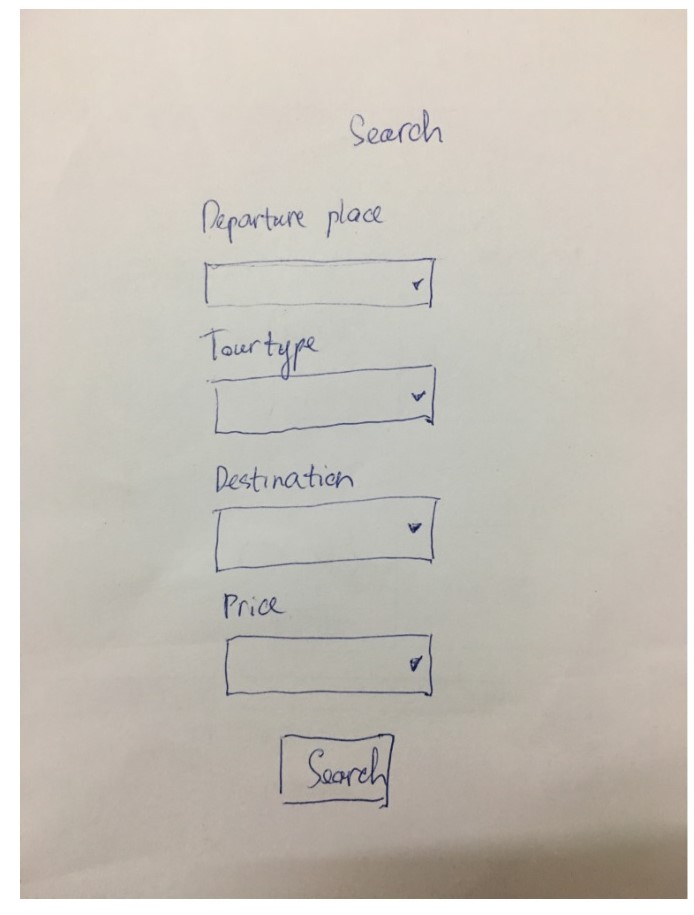 Search
Departure place
Tour type
Destination
Price
Search